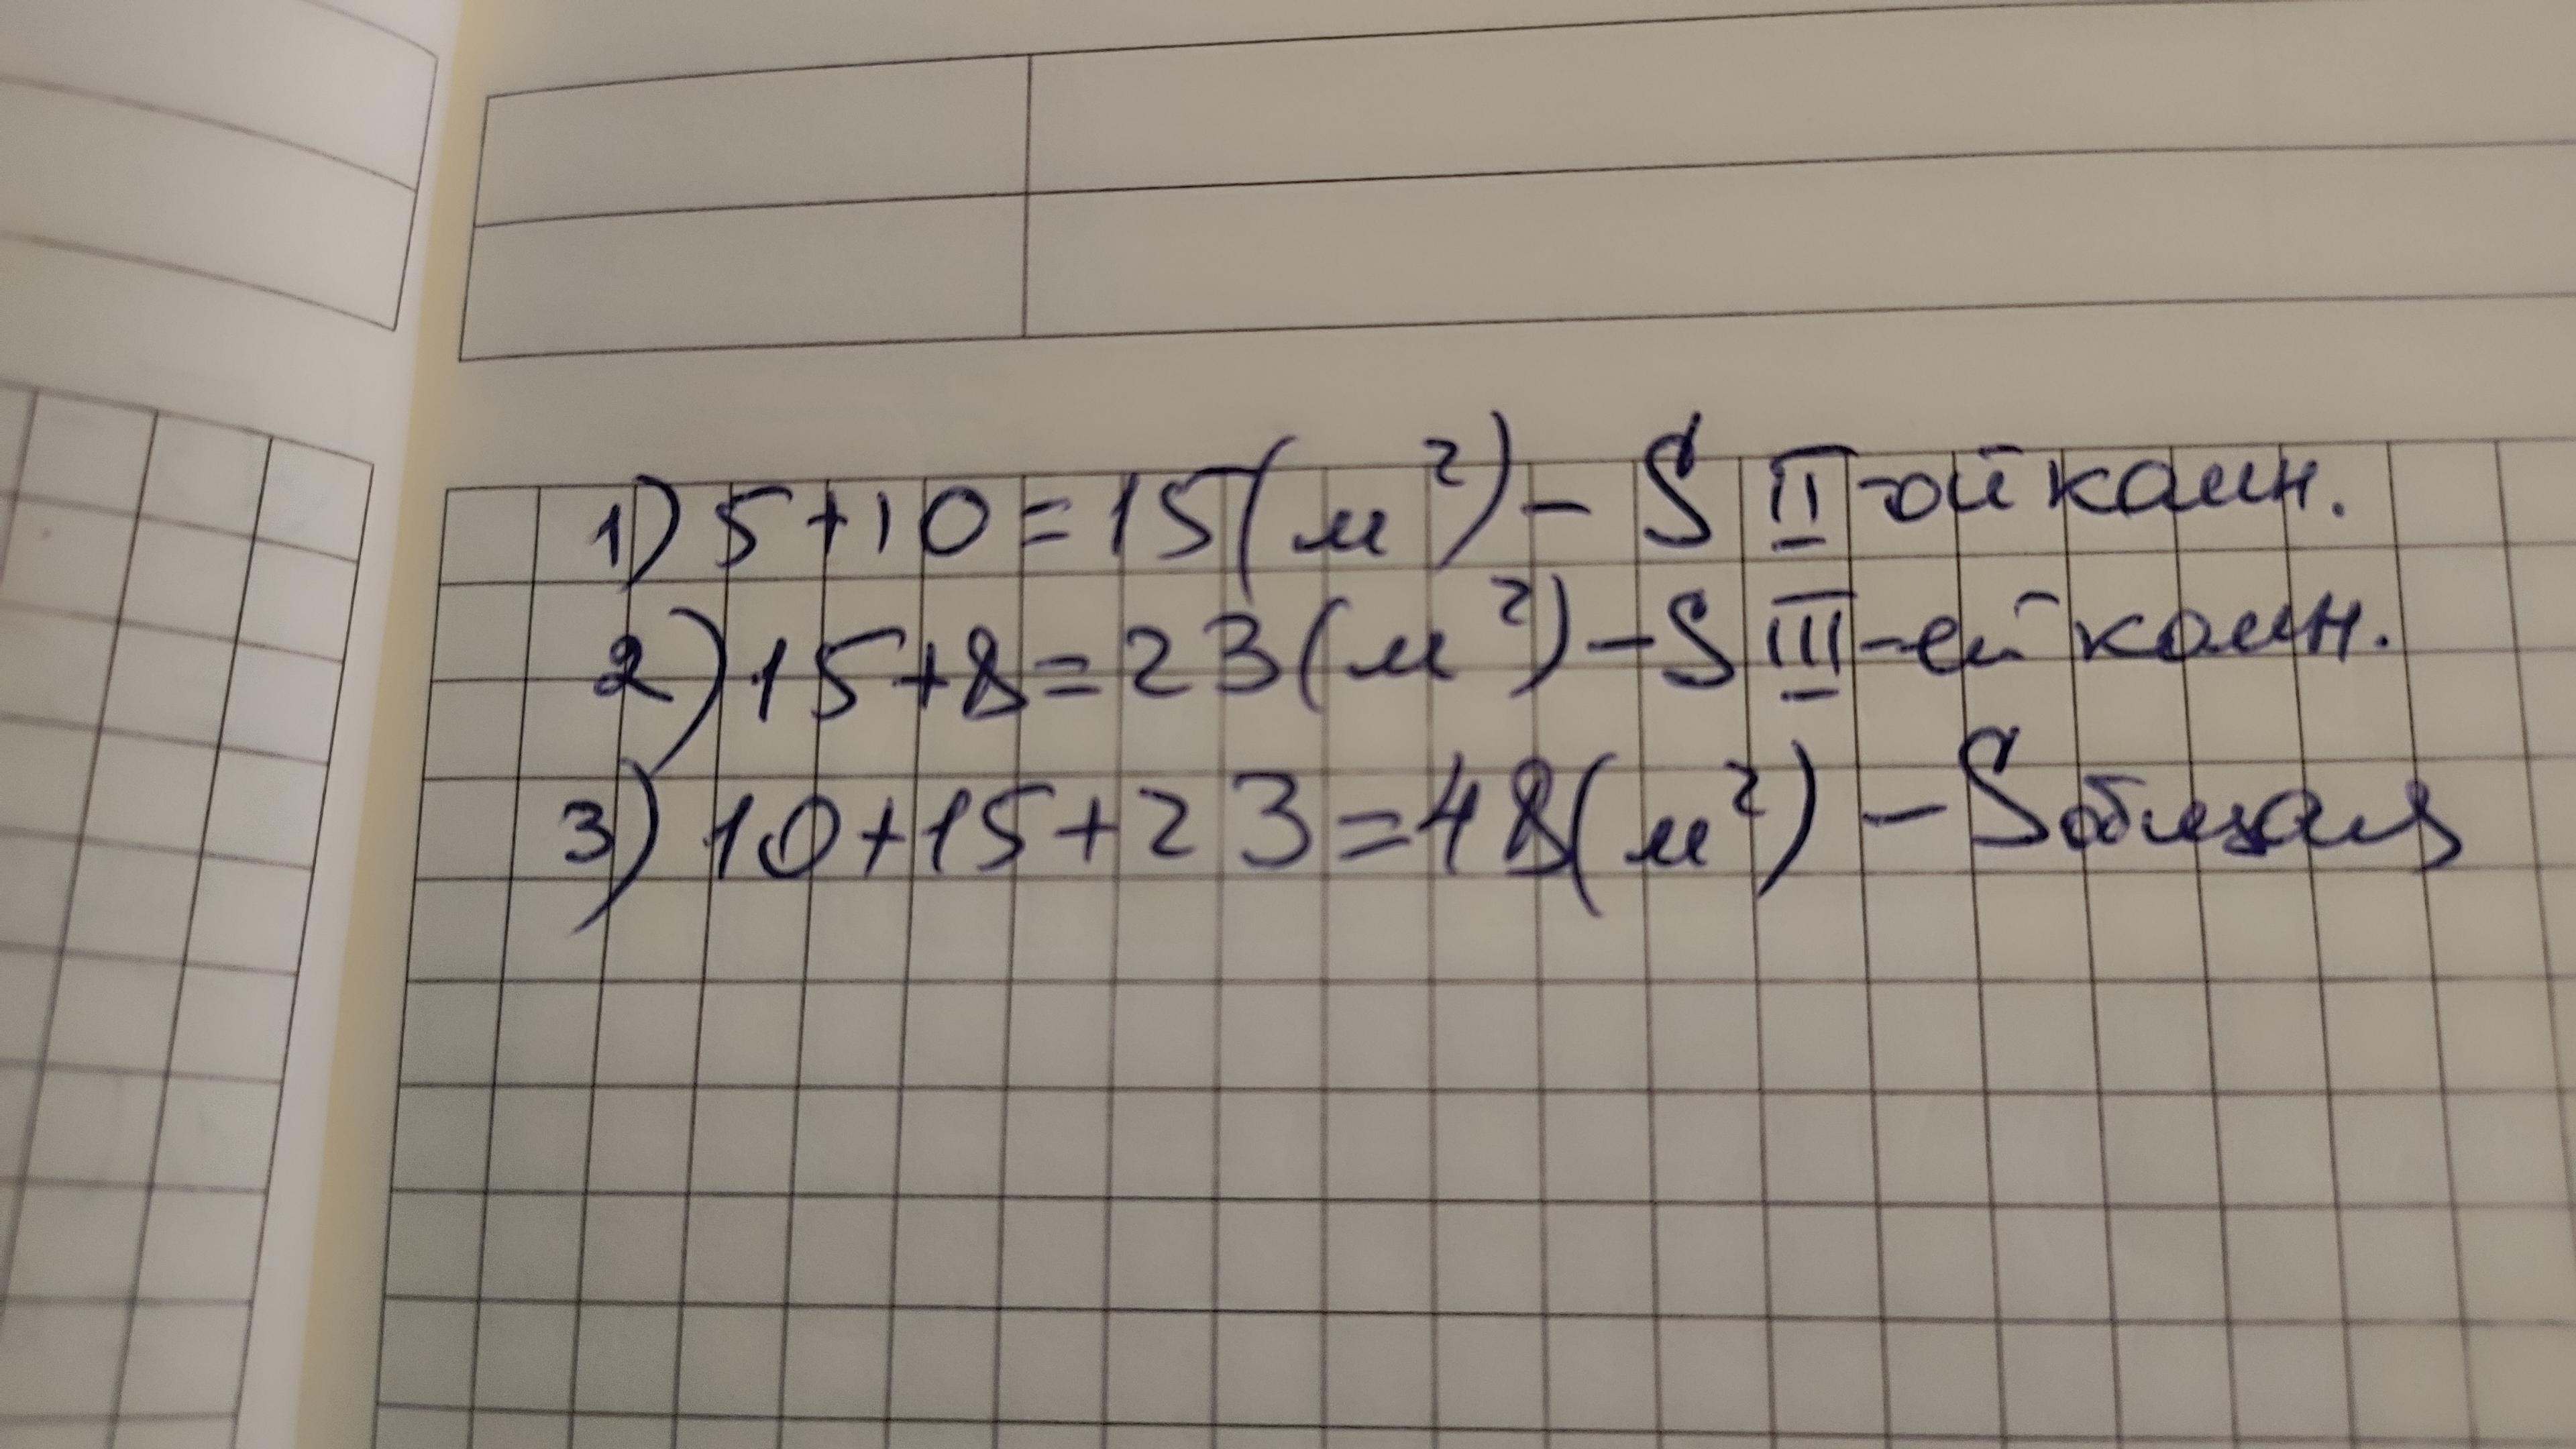 1) 5+10=15(м²)– S II-ой комн.
2) 15+8=23(м²)–S III-ей комн.
3) 10+15+23=48(м²) – Sобщая